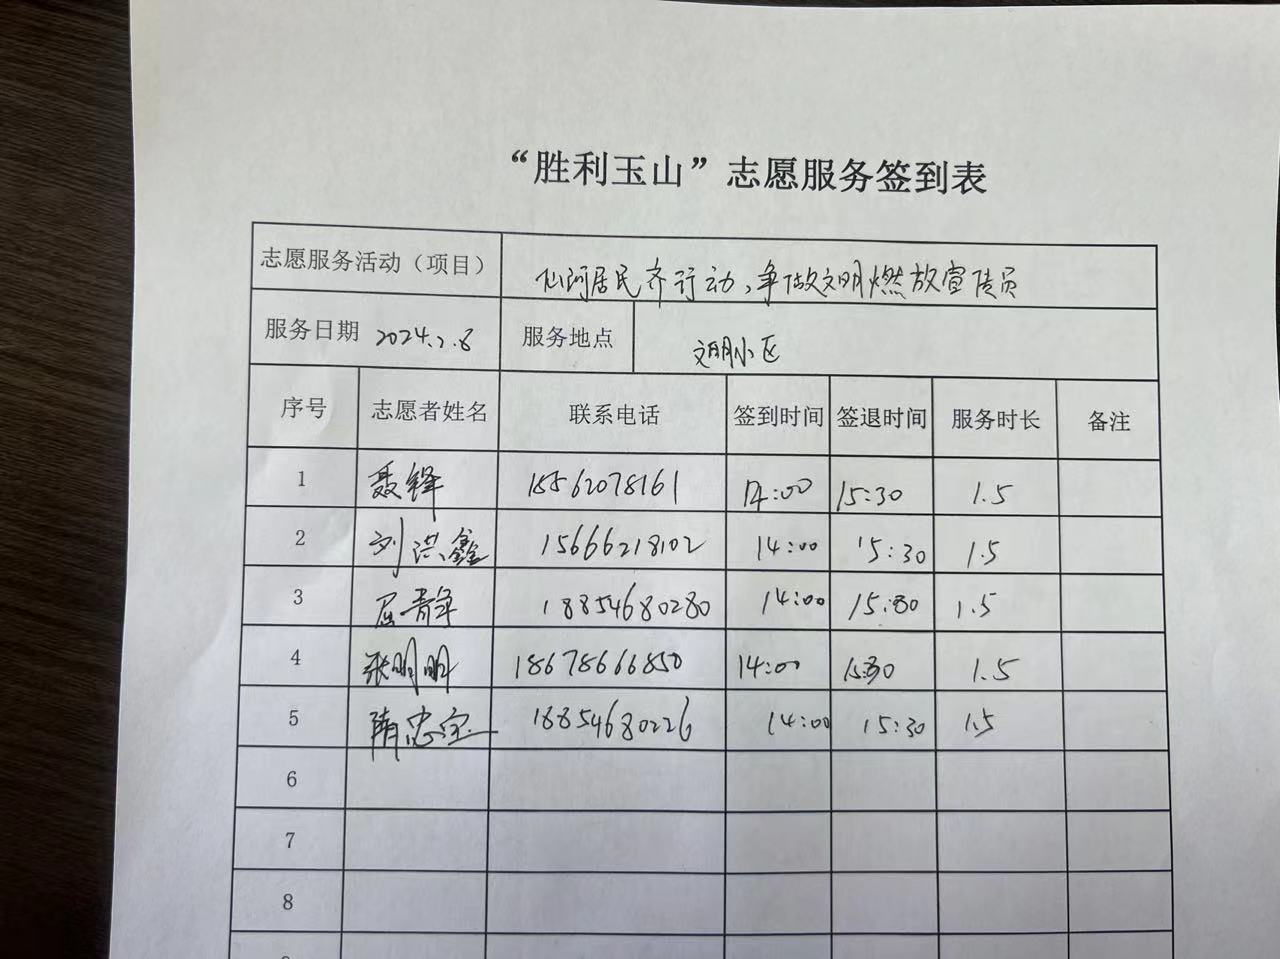 “胜利玉山”志愿服务签到表
志愿服务活动（项目） 仙河居民齐行动，争做文明燃放宣传员
服务日期 2024.2.8 服务地点 文明小区
序号 志愿者姓名 联系电话 签到时间 签退时间 服务时长 备注
1 聂锋 18562078161 14:00 15:30 1.5
2 刘洪鑫 15666218102 14:00 15:30 1.5
3 屈静 18854680280 14:00 15:30 1.5
4 张明明 18678666850 14:00 15:30 1.5
5 隋忠宝 18854680226 14:00 15:30 1.5
6
7
8